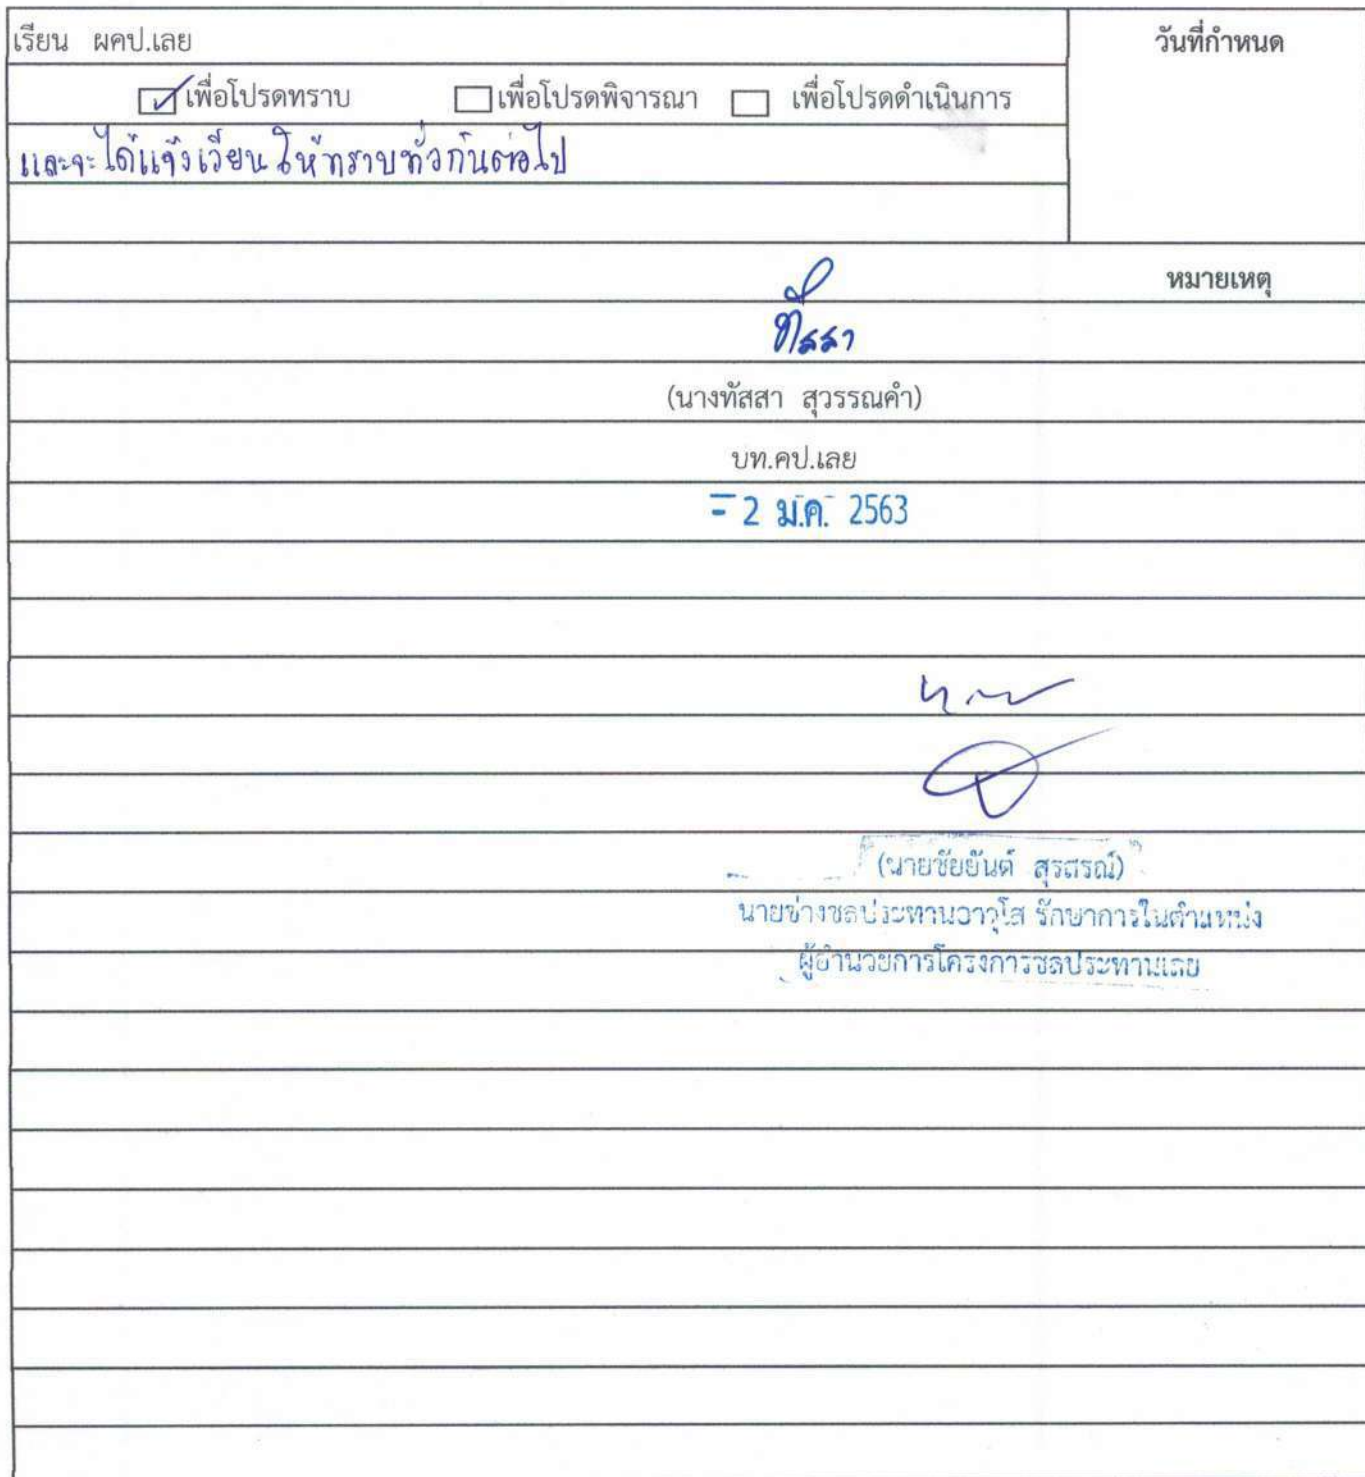 เรียน ผคป.เลย
วันที่กำหนด
เพื่อโปรดทราบ เพื่อโปรดพิจารณา เพื่อโปรดดำเนินการ
และจะได้แจ้งเวียนให้ทราบทั่วกันต่อไป
หมายเหตุ
ทัสสา
(นางทัสสา สุวรรณคำ)
บท.คป.เลย
- 2 ม.ค. 2563
(นายชัยยันต์ สุรสรณ์)
นายช่างชลประทานอาวุโส รักษาการในตำแหน่ง
ผู้อำนวยการโครงการชลประทานเลย